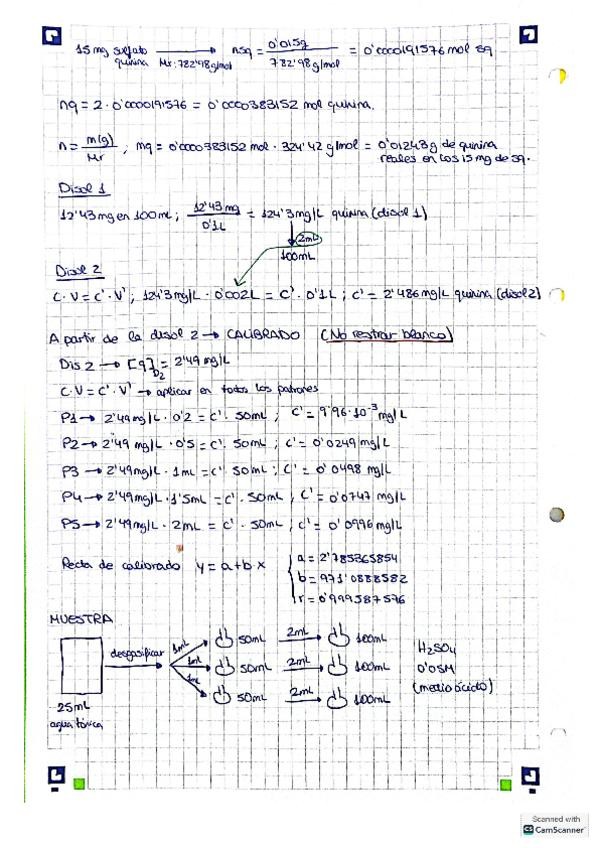 15 mg sulfato quinina → nsq = 0'015g / 782'98 g/mol = 0'0000191576 mol sq
Mr: 782'98 g/mol
nq = 2 · 0'0000191576 = 0'0000383152 mol quinina.
n = m(g) / Mr ; mq = 0'0000383152 mol · 324'42 g/mol = 0'01243 g de quinina
reales en los 15 mg de sq.
Disol 1
12'43 mg en 100 mL ; 12'43 mg / 0'1L = 124'3 mg/L quinina (disol 1)
2mL
100mL
Disol 2
C·V = C'·V' ; 124'3 mg/L · 0'002L = C'·0'1L ; C' = 2'486 mg/L quinina (disol 2)
A partir de la disol 2 → CALIBRADO (No restrar blanco)
Dis 2 → [q]D2 = 2'49 mg/L
C·V = C'·V' → aplicar en todos los patrones
P1 → 2'49 mg/L · 0'2 = C'· 50mL ; C' = 9'96·10⁻³ mg/L
P2 → 2'49 mg/L · 0'5 = C'· 50mL ; C' = 0'0249 mg/L
P3 → 2'49 mg/L · 1mL = C'· 50mL ; C' = 0'0498 mg/L
P4 → 2'49 mg/L · 1'5mL = C'· 50mL ; C' = 0'0747 mg/L
P5 → 2'49 mg/L · 2mL = C'· 50mL ; C' = 0'0996 mg/L
Recta de calibrado y = a+b·x
a = 2'785365854
b = 971'0888582
r = 0'999587576
MUESTRA
desgasificar
1mL 50mL 2mL 100mL
1mL 50mL 2mL 100mL
1mL 50mL 2mL 100mL
H₂SO₄
0'05M
(medio ácido)
25mL
agua tónica
Scanned with
CS CamScanner